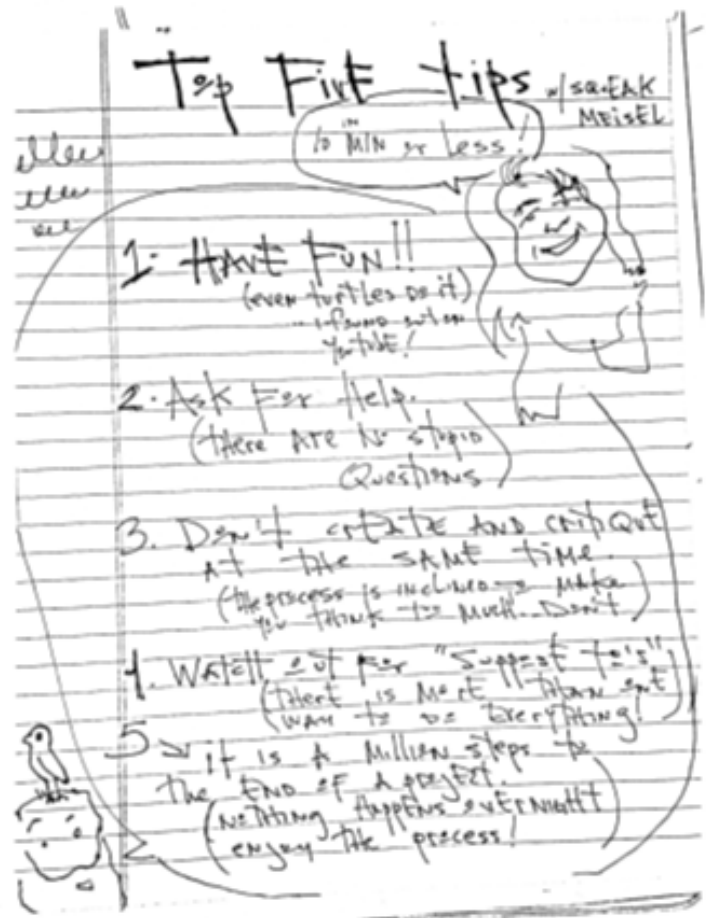 Top Five tips w/ SQUEAK
MEISEL
in
10 MIN or Less!
1. HAVE FUN!!
(even turtles do it)
... i found out on
YouTube!
2. Ask For Help.
(there are no stupid
Questions)
3. Don't create AND critique
AT the SAME time.
(the process is inclined to make
you think too much. Don't)
4. Watch out for "Suppose to's"
(there is more than one
way to do Everything!)
5 it is A Million steps to
the END of a project.
(nothing Happens overnight
enjoy the process!)